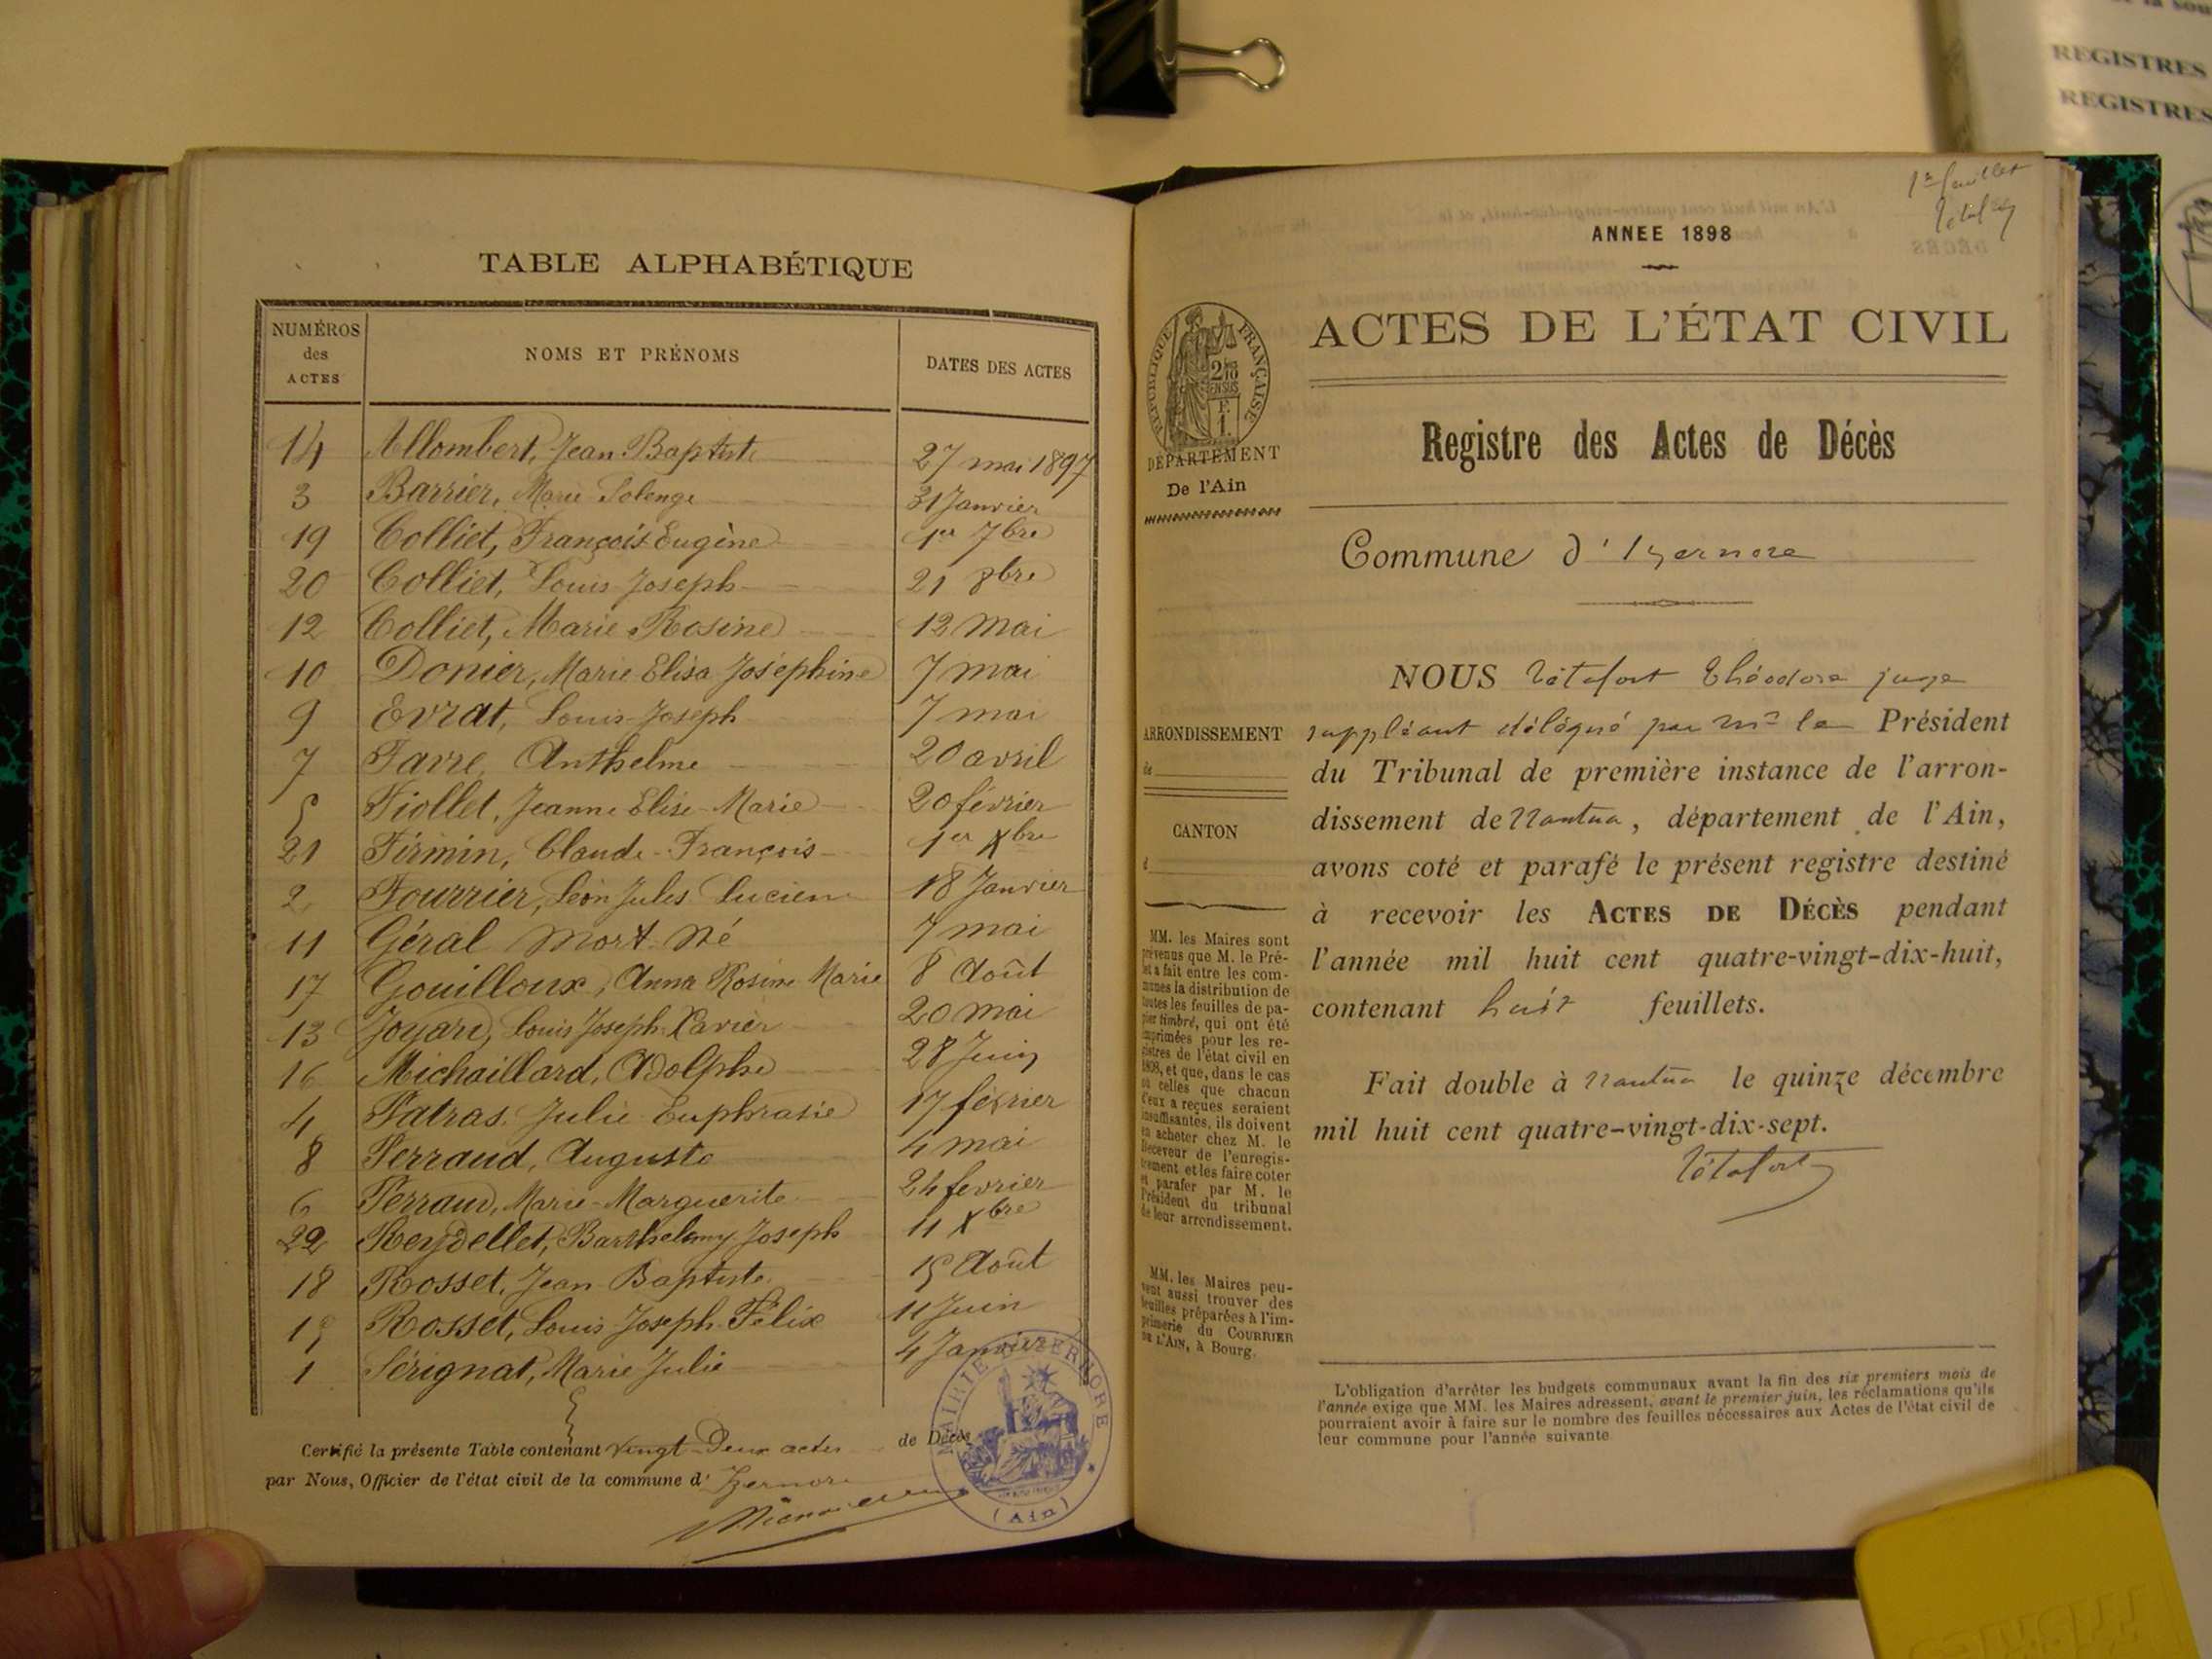 TABLE ALPHABÉTIQUE
NUMÉROS des ACTES NOMS ET PRÉNOMS DATES DES ACTES
14 Allombert, Jean Baptiste 27 mai 1897
3 Barrier, Marie Solenge 31 Janvier
19 Colliet, François Eugène 1er 7bre
20 Colliet, Louis Joseph 21 8bre
12 Colliet, Marie Rosine 12 mai
10 Donier, Marie Elisa Joséphine 7 mai
9 Evrat, Louis Joseph 7 mai
7 Favre, Anthelme 20 avril
5 Fiollet, Jeanne Elise Marie 20 février
21 Firmin, Claude-François 1er Xbre
2 Fourrier, Léon Jules Lucien 18 Janvier
11 Géral Mort-Né 7 mai
17 Gouilloux, Anna Rosine Marie 8 Août
13 Joyard, Louis Joseph Xavier 20 mai
16 Michaillard, Adolphe 28 Juin
4 Patras, Julie Euphrasie 17 février
8 Perraud, Auguste 4 mai
6 Perraud, Marie-Marguerite 24 février
22 Reydellet, Barthelemy Joseph 11 Xbre
18 Rosset, Jean Baptiste 15 Août
15 Rosset, Louis Joseph Félix 11 Juin
1 Sérignat, Marie Julie 4 Janvier
Certifié la présente Table contenant vingt-Deux actes de Décès
par Nous, Officier de l'état civil de la commune d' Izernore
MAIRIE D'IZERNORE
(Ain)
1er feuillet
ANNEE 1898
ACTES DE L'ÉTAT CIVIL
RÉPUBLIQUE FRANÇAISE
DÉPARTEMENT
De l'Ain
Registre des Actes de Décès
Commune d'Izernore
NOUS Tétafort Théodore juge
suppléant délégué par Mr le Président
du Tribunal de première instance de l'arron-
dissement de Nantua, département de l'Ain,
avons coté et parafé le présent registre destiné
à recevoir les ACTES DE DÉCÈS pendant
l'année mil huit cent quatre-vingt-dix-huit,
contenant huit feuillets.
Fait double à Nantua le quinze décembre
mil huit cent quatre-vingt-dix-sept.
Tétafort
ARRONDISSEMENT
de
CANTON
d
MM. les Maires sont
prévenus que M. le Pré-
fet a fait entre les com-
munes la distribution de
toutes les feuilles de pa-
pier timbré, qui ont été
imprimées pour les re-
gistres de l'état civil en
1898, et que, dans le cas
où celles que chacun
d'eux a reçues seraient
insuffisantes, ils doivent
en acheter chez M. le
Receveur de l'enregis-
trement et les faire coter
et parafer par M. le
Président du tribunal
de leur arrondissement.
MM. les Maires peu-
vent aussi trouver des
feuilles préparées à l'im-
primerie du COURRIER
DE L'AIN, à Bourg.
L'obligation d'arrêter les budgets communaux avant la fin des six premiers mois de
l'année exige que MM. les Maires adressent, avant le premier juin, les réclamations qu'ils
pourraient avoir à faire sur le nombre des feuilles nécessaires aux Actes de l'état civil de
leur commune pour l'année suivante
REGISTRES
REGISTRES